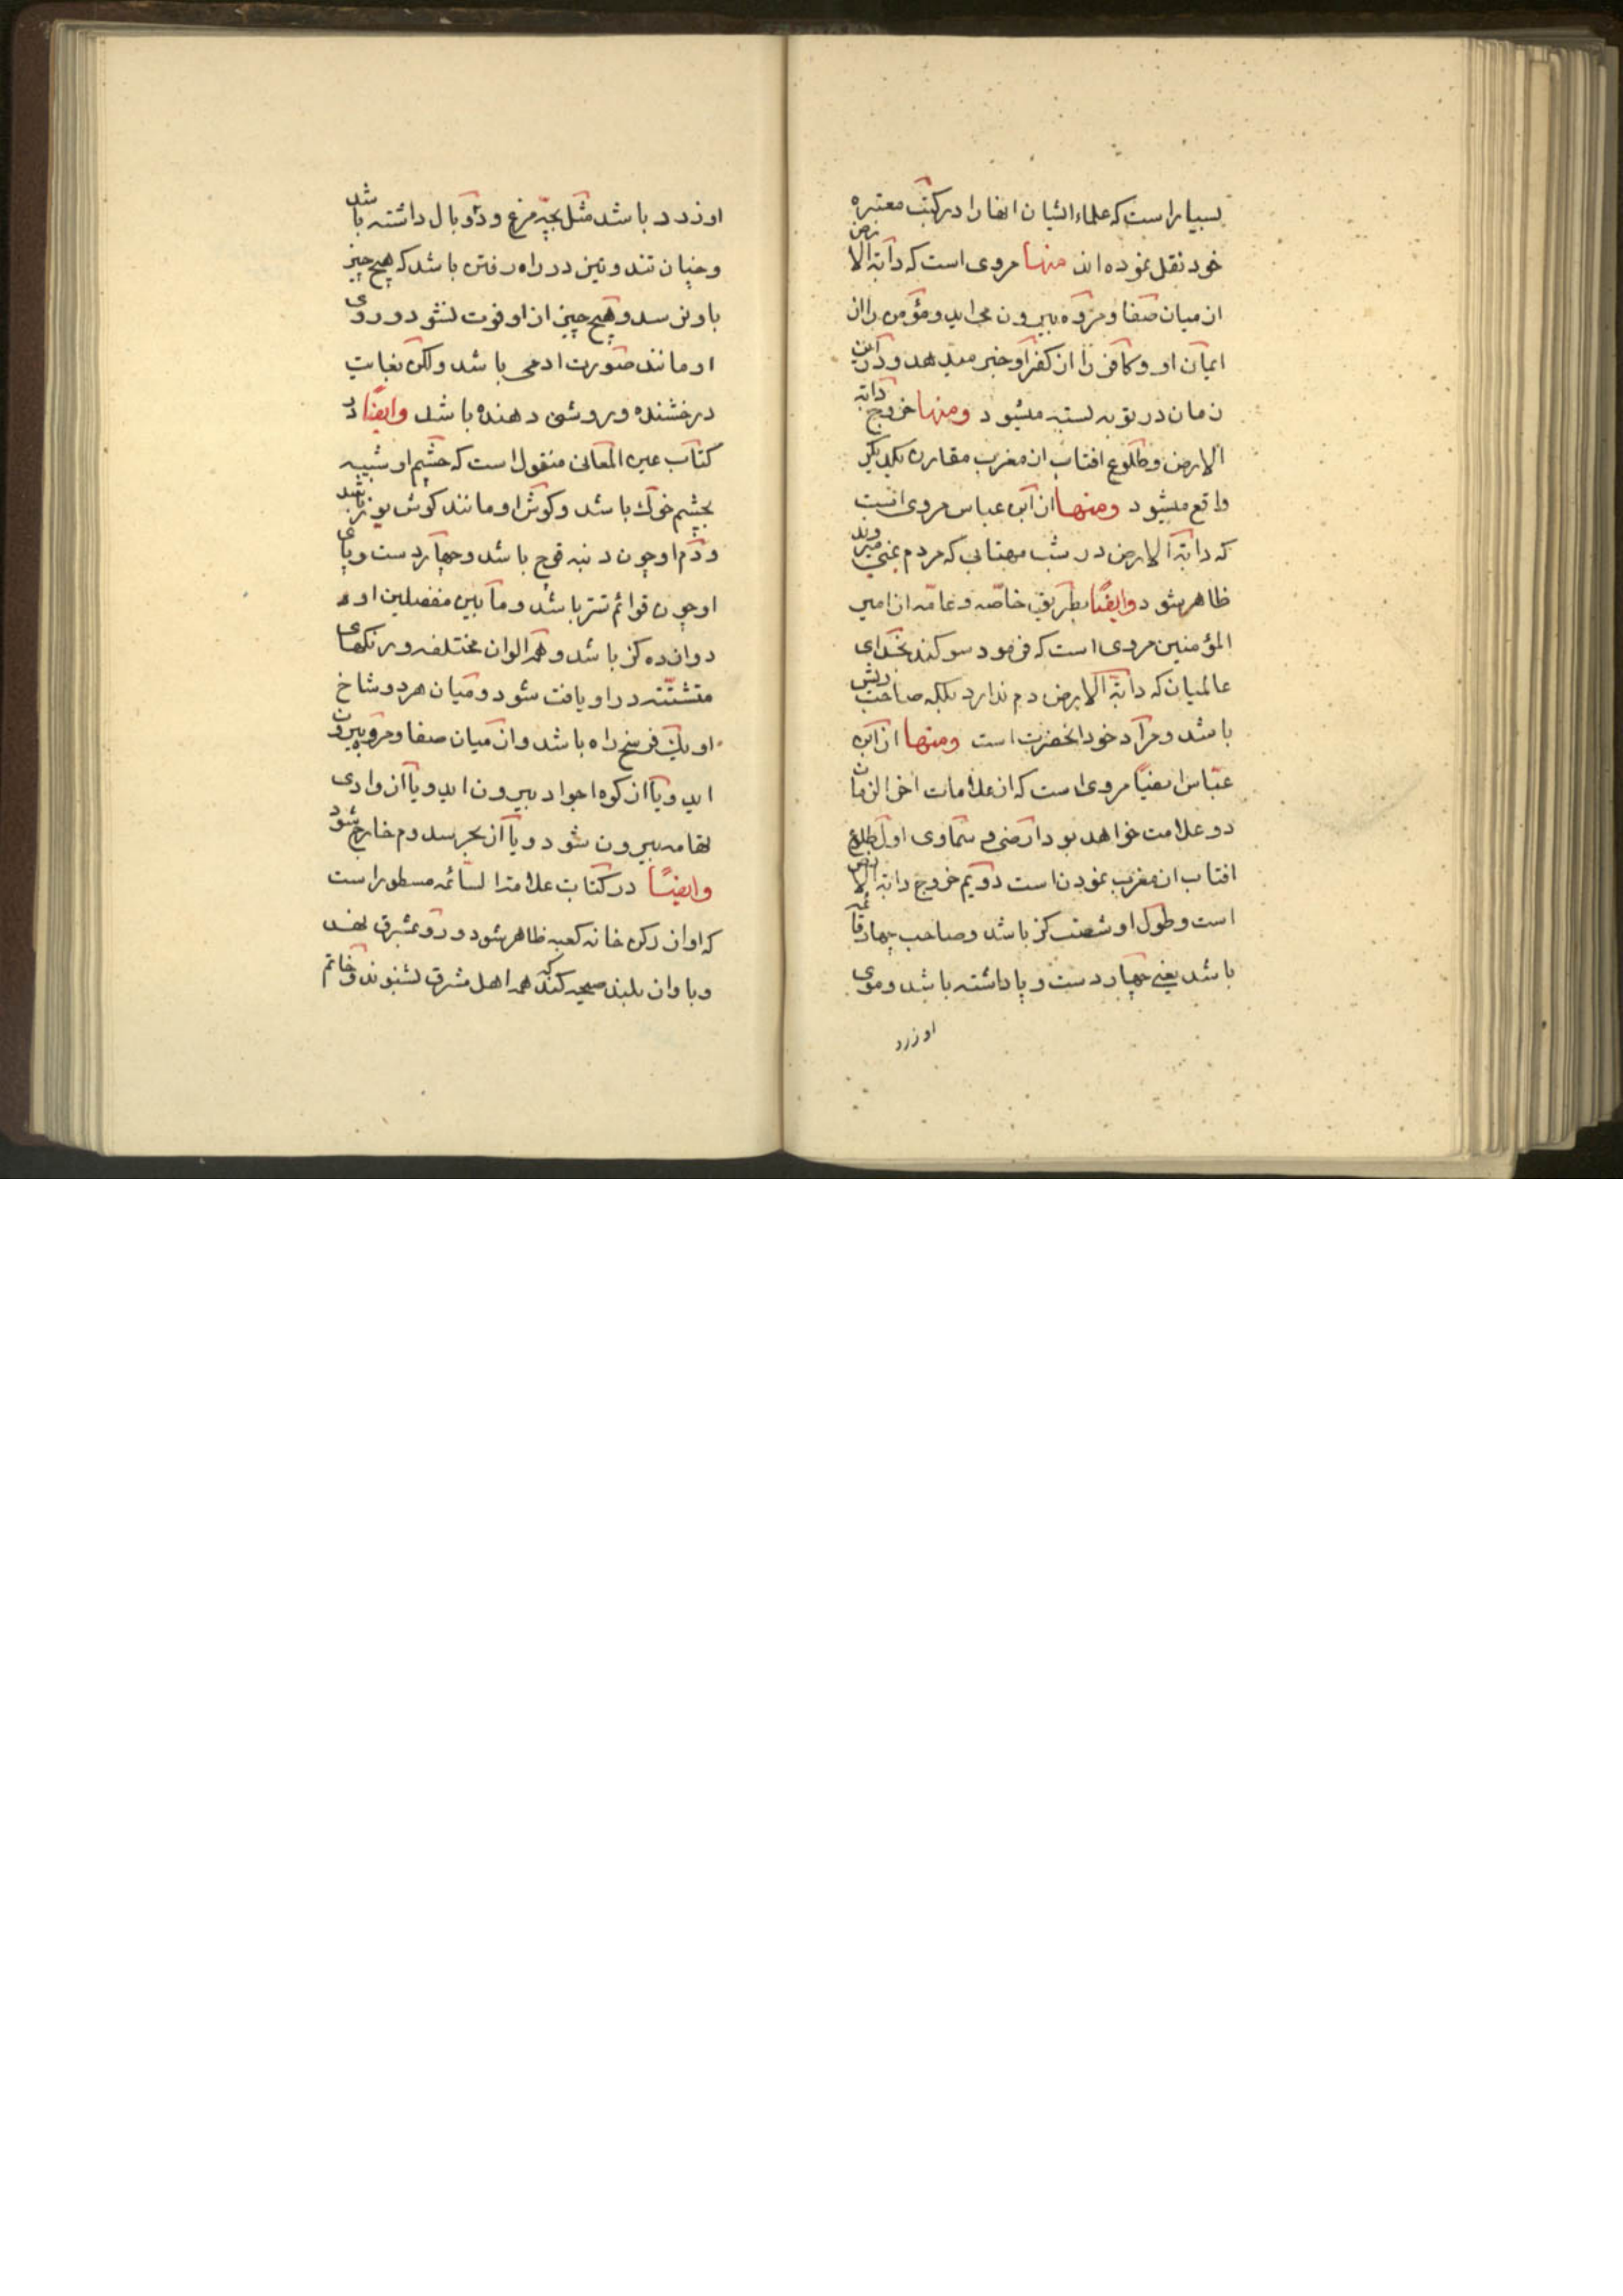 بسیار است که علماء ایشان انها را در کتب معتبره
خود نقل نموده اند منها مروی است که دابة الارض
از میان صفا و مروه بیرون می اید و مؤمن را از
ایمان او و کافر را از کفر او خبر میدهد و در این
زمان در توبه بسته میشود ومنها خروج دابة
الارض و طلوع افتاب از مغرب مقارن یکدیکر
واقع میشود ومنها از ابن عباس مروی است
که دابة الارض در شب مهتابی که مردم بمنی میروند
ظاهر شود وایضًا بطریق خاصّه و عامّه از امیر
المؤمنین مروی است که فرمود سوکند بخدای
عالمیان که دابة الارض دم ندارد بلکه صاحب ریش
باشد و مراد خود انحضرت است ومنها از ابن
عبّاس ایضًا مروی است که از علامات اخر الزمان
دو علامت خواهد بود ارضی و سماوی اول طلوع
افتاب از مغرب نمودن است دویم خروج دابة الارض
است و طول او شصت کز باشد و صاحب چهار قائمه
باشد یعنی چهار دست و پا داشته باشد و موی
او زرد
او زرد باشد مثل بچّه مرغ و دو بال داشته باشد
و چنان تند و تیز در راه رفتن باشد که هیچ چیز
باو نرسد و هیچ چیز از او فوت نشود و روی
او مانند صورت ادمی باشد ولکن بغایت
درخشنده و روشنی دهنده باشد وایضًا در
کتاب عین المعانی منقول است که چشم او شبیه
بچشم خوک باشد و کوش او مانند کوش یوز باشد
و دم او چون دنبه قوچ باشد و چهار دست و پای
او چون قوائم شتر باشد و ما بین مفصلین او
دوازده کز باشد و همه الوان مختلفه و رنکهای
متشتّته در او یافت شود و میان هر دو شاخ
او یک فرسخ راه باشد و از میان صفا و مروه بیرون
اید و یا از کوه اجواد بیرون اید و یا از وادی
تهامه بیرون شود و یا از بحر سدوم خارج شود
وایضًا در کتاب علامة الساعه مسطور است
که او از رکن خانه کعبه ظاهر شود و رو بمشرق نهد
و باواز بلند صیحه کند که همه اهل مشرق بشنوند و خاتم